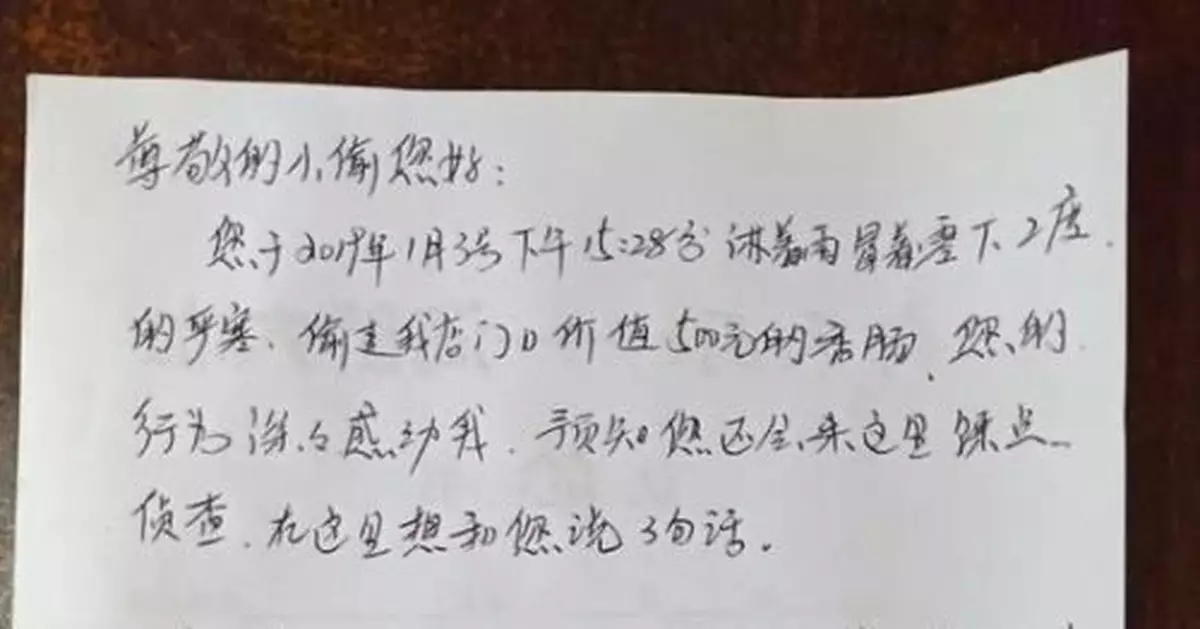 尊敬的小偷您好：
您于2019年1月3号下午15:28分淋着雨冒着零下2度.
的严寒、偷走我店门口价值500元的香肠、您的
行为深深感动我.预知您还会来这里踩点
侦查.在这里想和您说3句话.